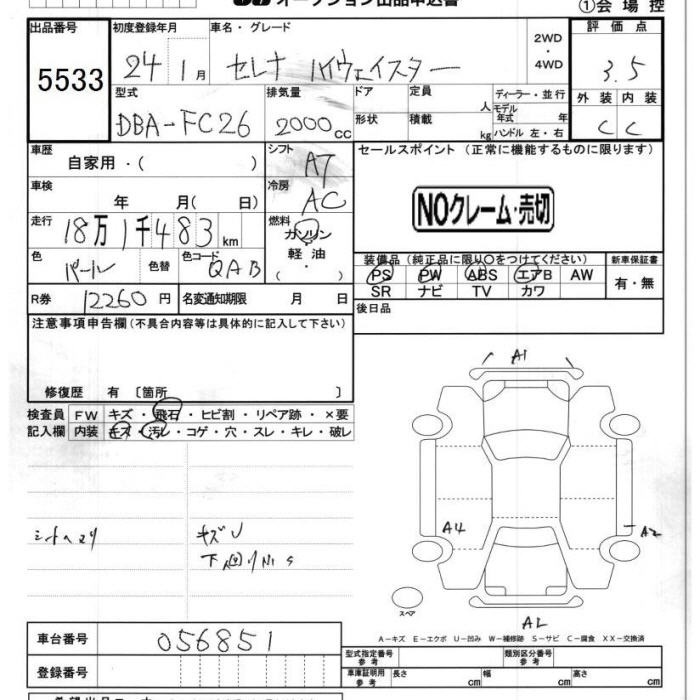 オークション出品申込書
①会場控
出品番号
5533
初度登録年月
24 1月
車名・グレード
セレナ ハイウェイスター
2WD
・
4WD
評価点
3.5
外装 内装
C C
型式
DBA-FC26
排気量
2000cc
ドア
定員
人
形状
積載
kg
ディーラー・並行
モデル年式 年
ハンドル 左・右
車歴
自家用・( )
シフト
AT
セールスポイント (正常に機能するものに限ります)
NOクレーム・売切
車検
年 月( 日)
冷房
AC
走行
18万1千483km
燃料
ガソリン
軽油
・
( )
色
パール
色替
色コード
QAB
装備品(純正品に限り〇をつけてください)
新車保証書
PS PW ABS エアB AW
SR ナビ TV カワ
有・無
R券 12260円
名変通知期限 月 日
後日品
注意事項申告欄(不具合内容等は具体的に記入して下さい)
修復歴 有 〔箇所 〕
検査員
記入欄
FW キズ・飛石・ヒビ割・リペア跡・×要
内装 キズ・汚レ・コゲ・穴・スレ・キレ・破レ
シートヘタリ
キズU
A1
A4
A2
スペア
A2
A-キズ E-エクボ U-凹み W-補修跡 S-サビ C-腐食 XX-交換済
車台番号
056851
登録番号
型式指定番号
参考
類別区分番号
参考
車庫証明用
参考
長さ cm
幅 cm
高さ cm